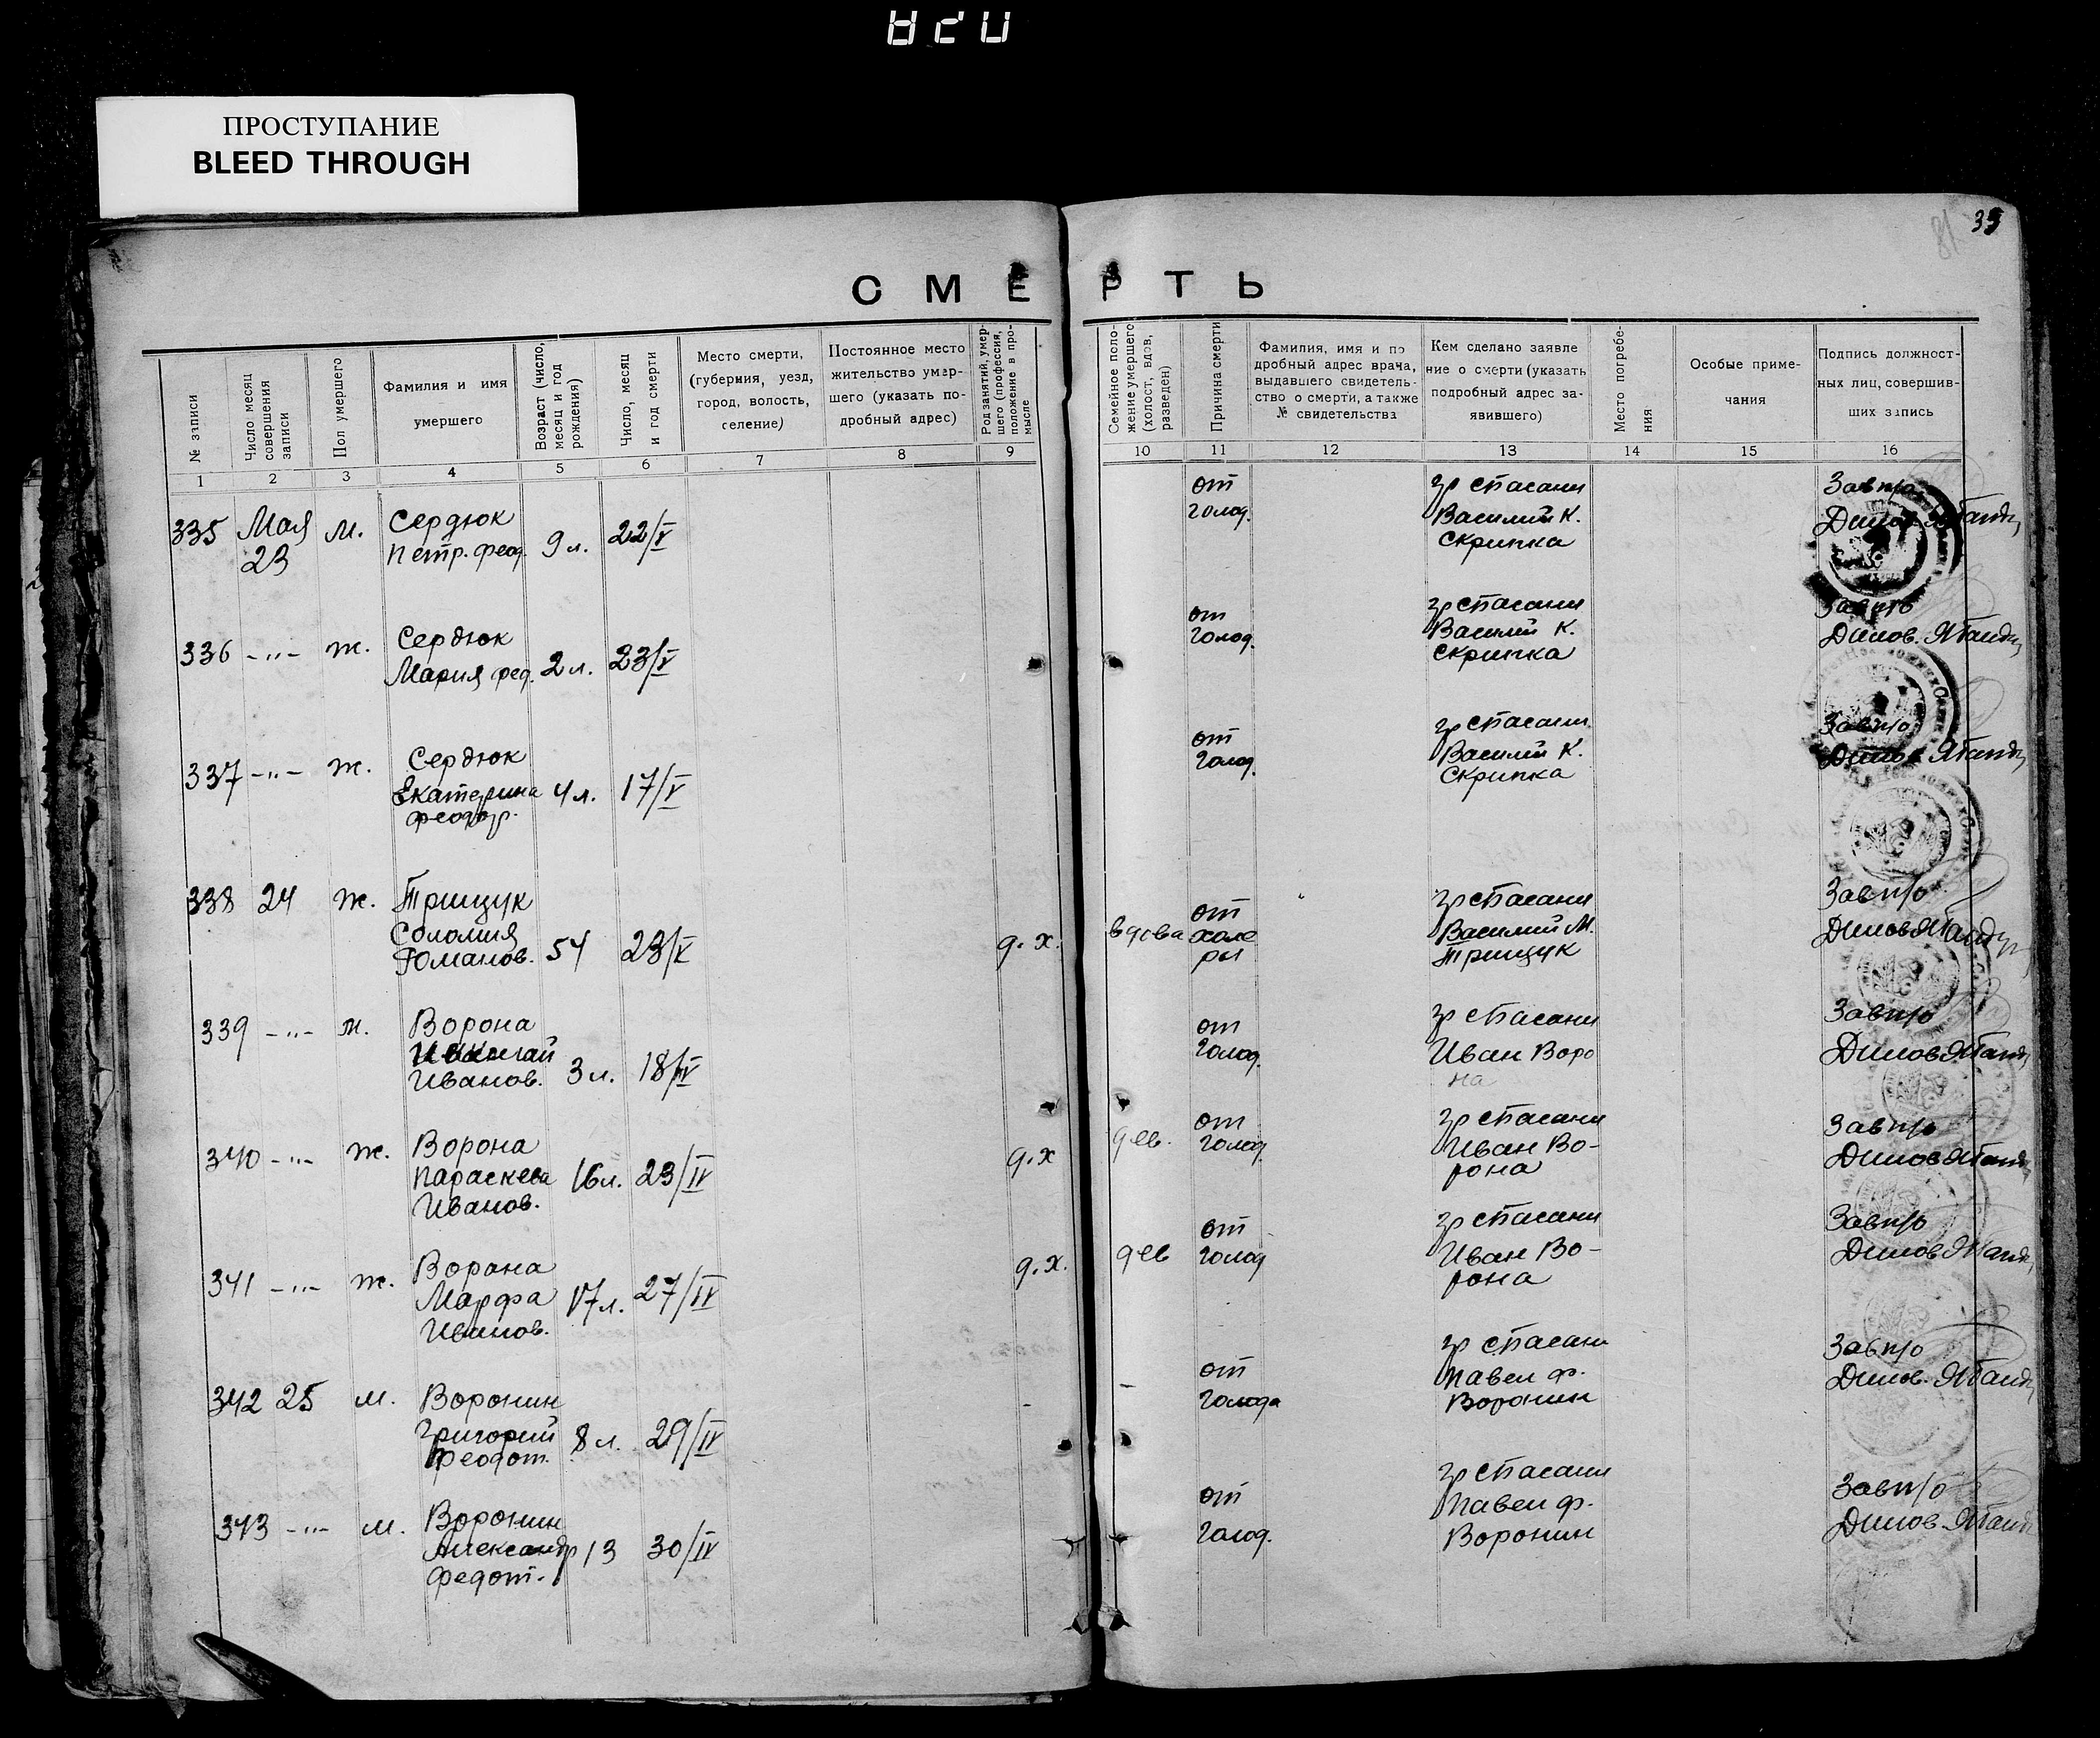 ПРОСТУПАНИЕ
BLEED THROUGH
39
81
СМЕРТЬ
№ записи
Число месяц совершения записи
Пол умершего
Фамилия и имя умершего
Возраст (число, месяц и год рождения)
Число, месяц и год смерти
Место смерти, (губерния, уезд, город, волость, селение)
Постоянное место жительство умершего (указать подробный адрес)
Род занятий, умершего (профессия, положение в промысле
Семейное положение умершего (холост, вдов, разведен)
Причина смерти
Фамилия, имя и подробный адрес врача, выдавшего свидетельство о смерти, а также № свидетельства
Кем сделано заявление о смерти (указать подробный адрес заявившего)
Место погребения
Особые примечания
Подпись должностных лиц, совершивших запись
1 2 3 4 5 6 7 8 9 10 11 12 13 14 15 16
335 Мая 23 м. Сердюк Петр. феод. 9 л. 22/V от голод. гр Спасани Василий К. Скрипка Завп/о
336 -"- ж. Сердюк Мария фед. 2 л. 23/V от голод. гр Спасани Василий К. Скрипка Завп/о
337 -"- ж. Сердюк Екатерина феодор. 4 л. 17/V от голод. гр Спасани Василий К. Скрипка Завп/о
338 24 ж. Грищук Соломия Романов. 54 23/V д. х. вдова от холеры гр Спасани Василий М. Грищук Завп/о
339 -"- ж. Ворона Иванов. 3 л. 18/IV от голод. гр Спасани Иван Ворона Завп/о
340 -"- ж. Ворона Параскева Иванов. 16 л. 23/IV д. х дев. от голод гр Спасани Иван Ворона Завп/о
341 -"- ж. Ворона Марфа Иванов. 17 л. 27/IV д. х. дев от голод гр Спасани Иван Ворона Завп/о
342 25 м. Воронин Григорий Феодот. 8 л. 29/IV - - от голода гр Спасани Павел ф. Воронин Завп/о
343 -"- м. Воронин Александр Федот. 13 30/IV от голод. гр Спасани Павел ф. Воронин Завп/о